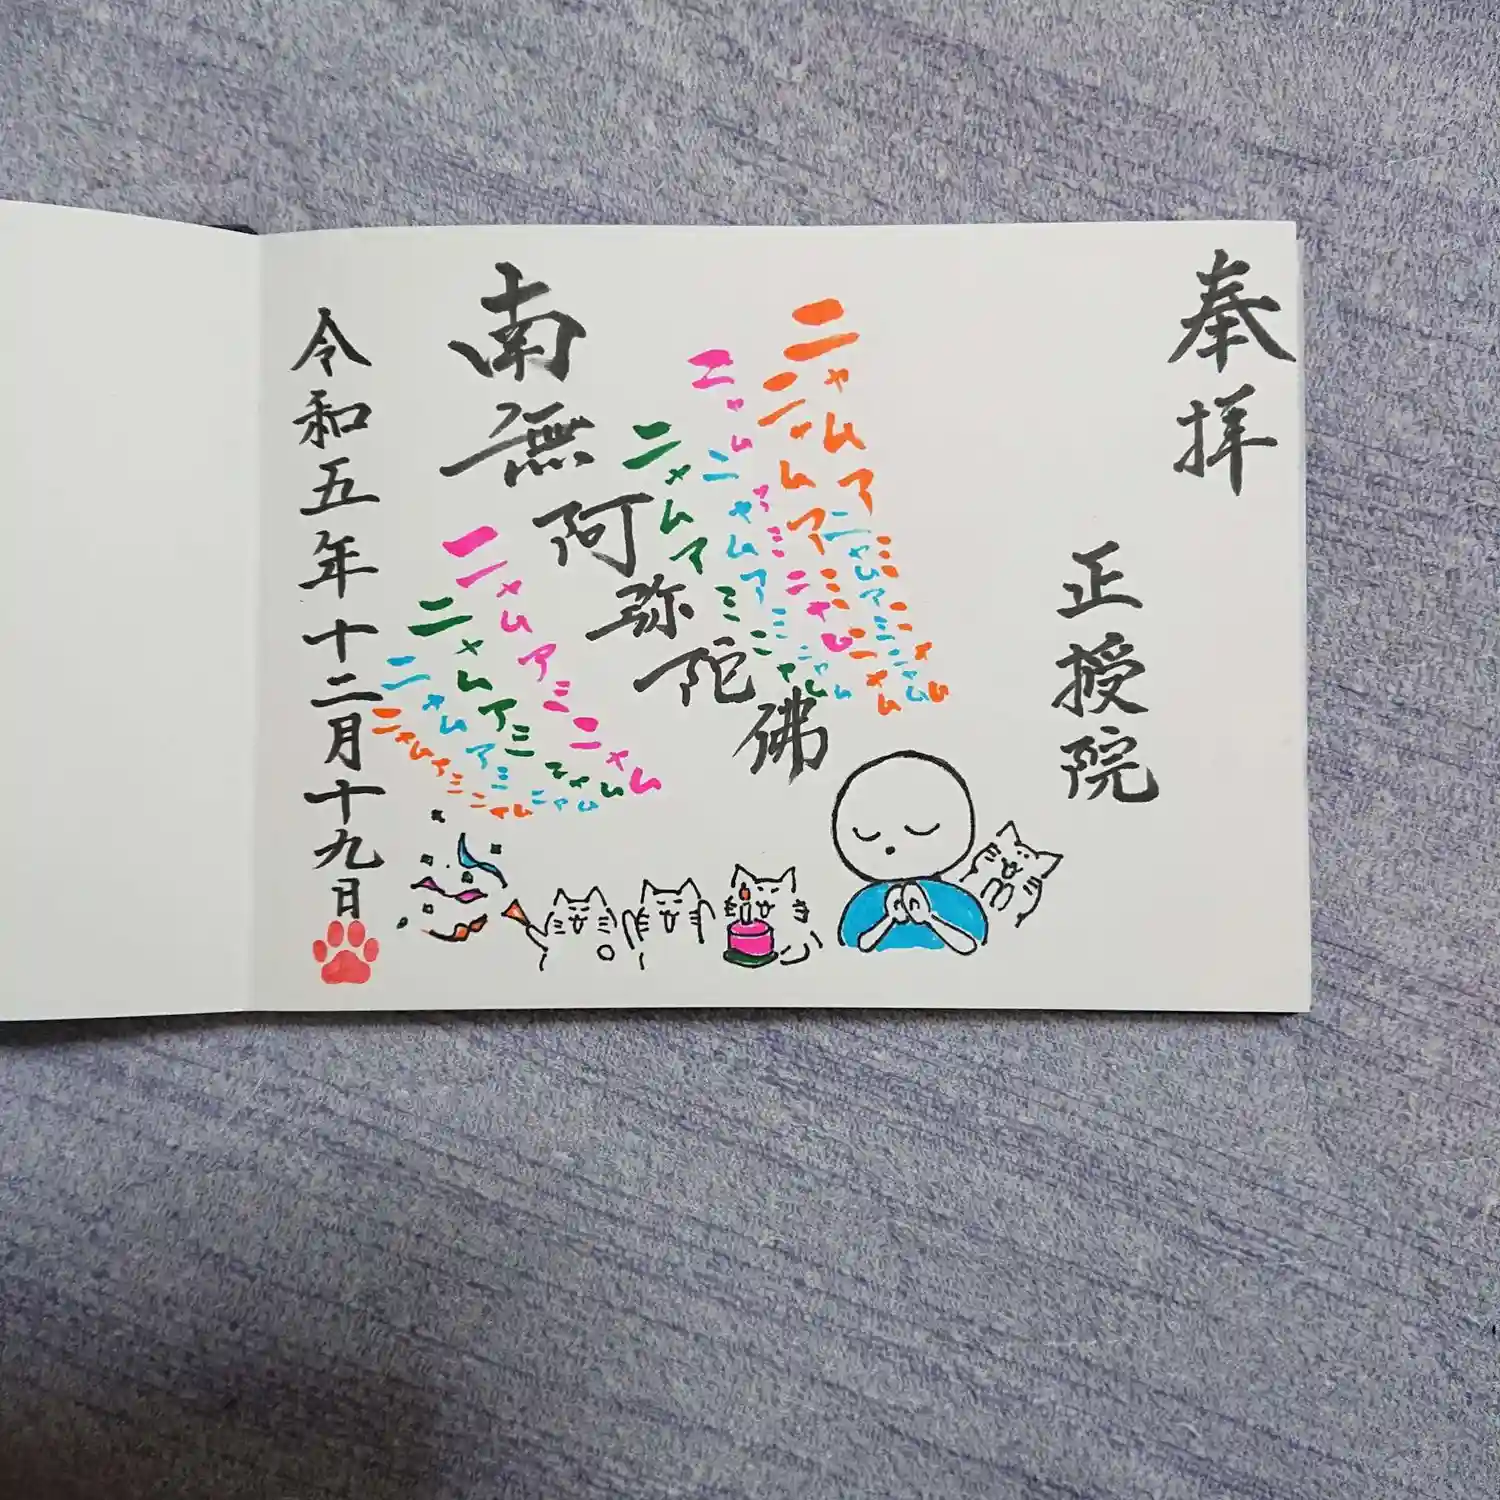 奉拝
正授院
ニャムアミニャム
ニャムアミニャム
ニャムアミニャム
ニャムアミニャム
ニャムアミニャム
ニャムアミニャム
南無阿弥陀佛
ニャムアミニャム
ニャムアミニャム
ニャムアミニャム
ニャムアミニャム
令和五年十二月十九日